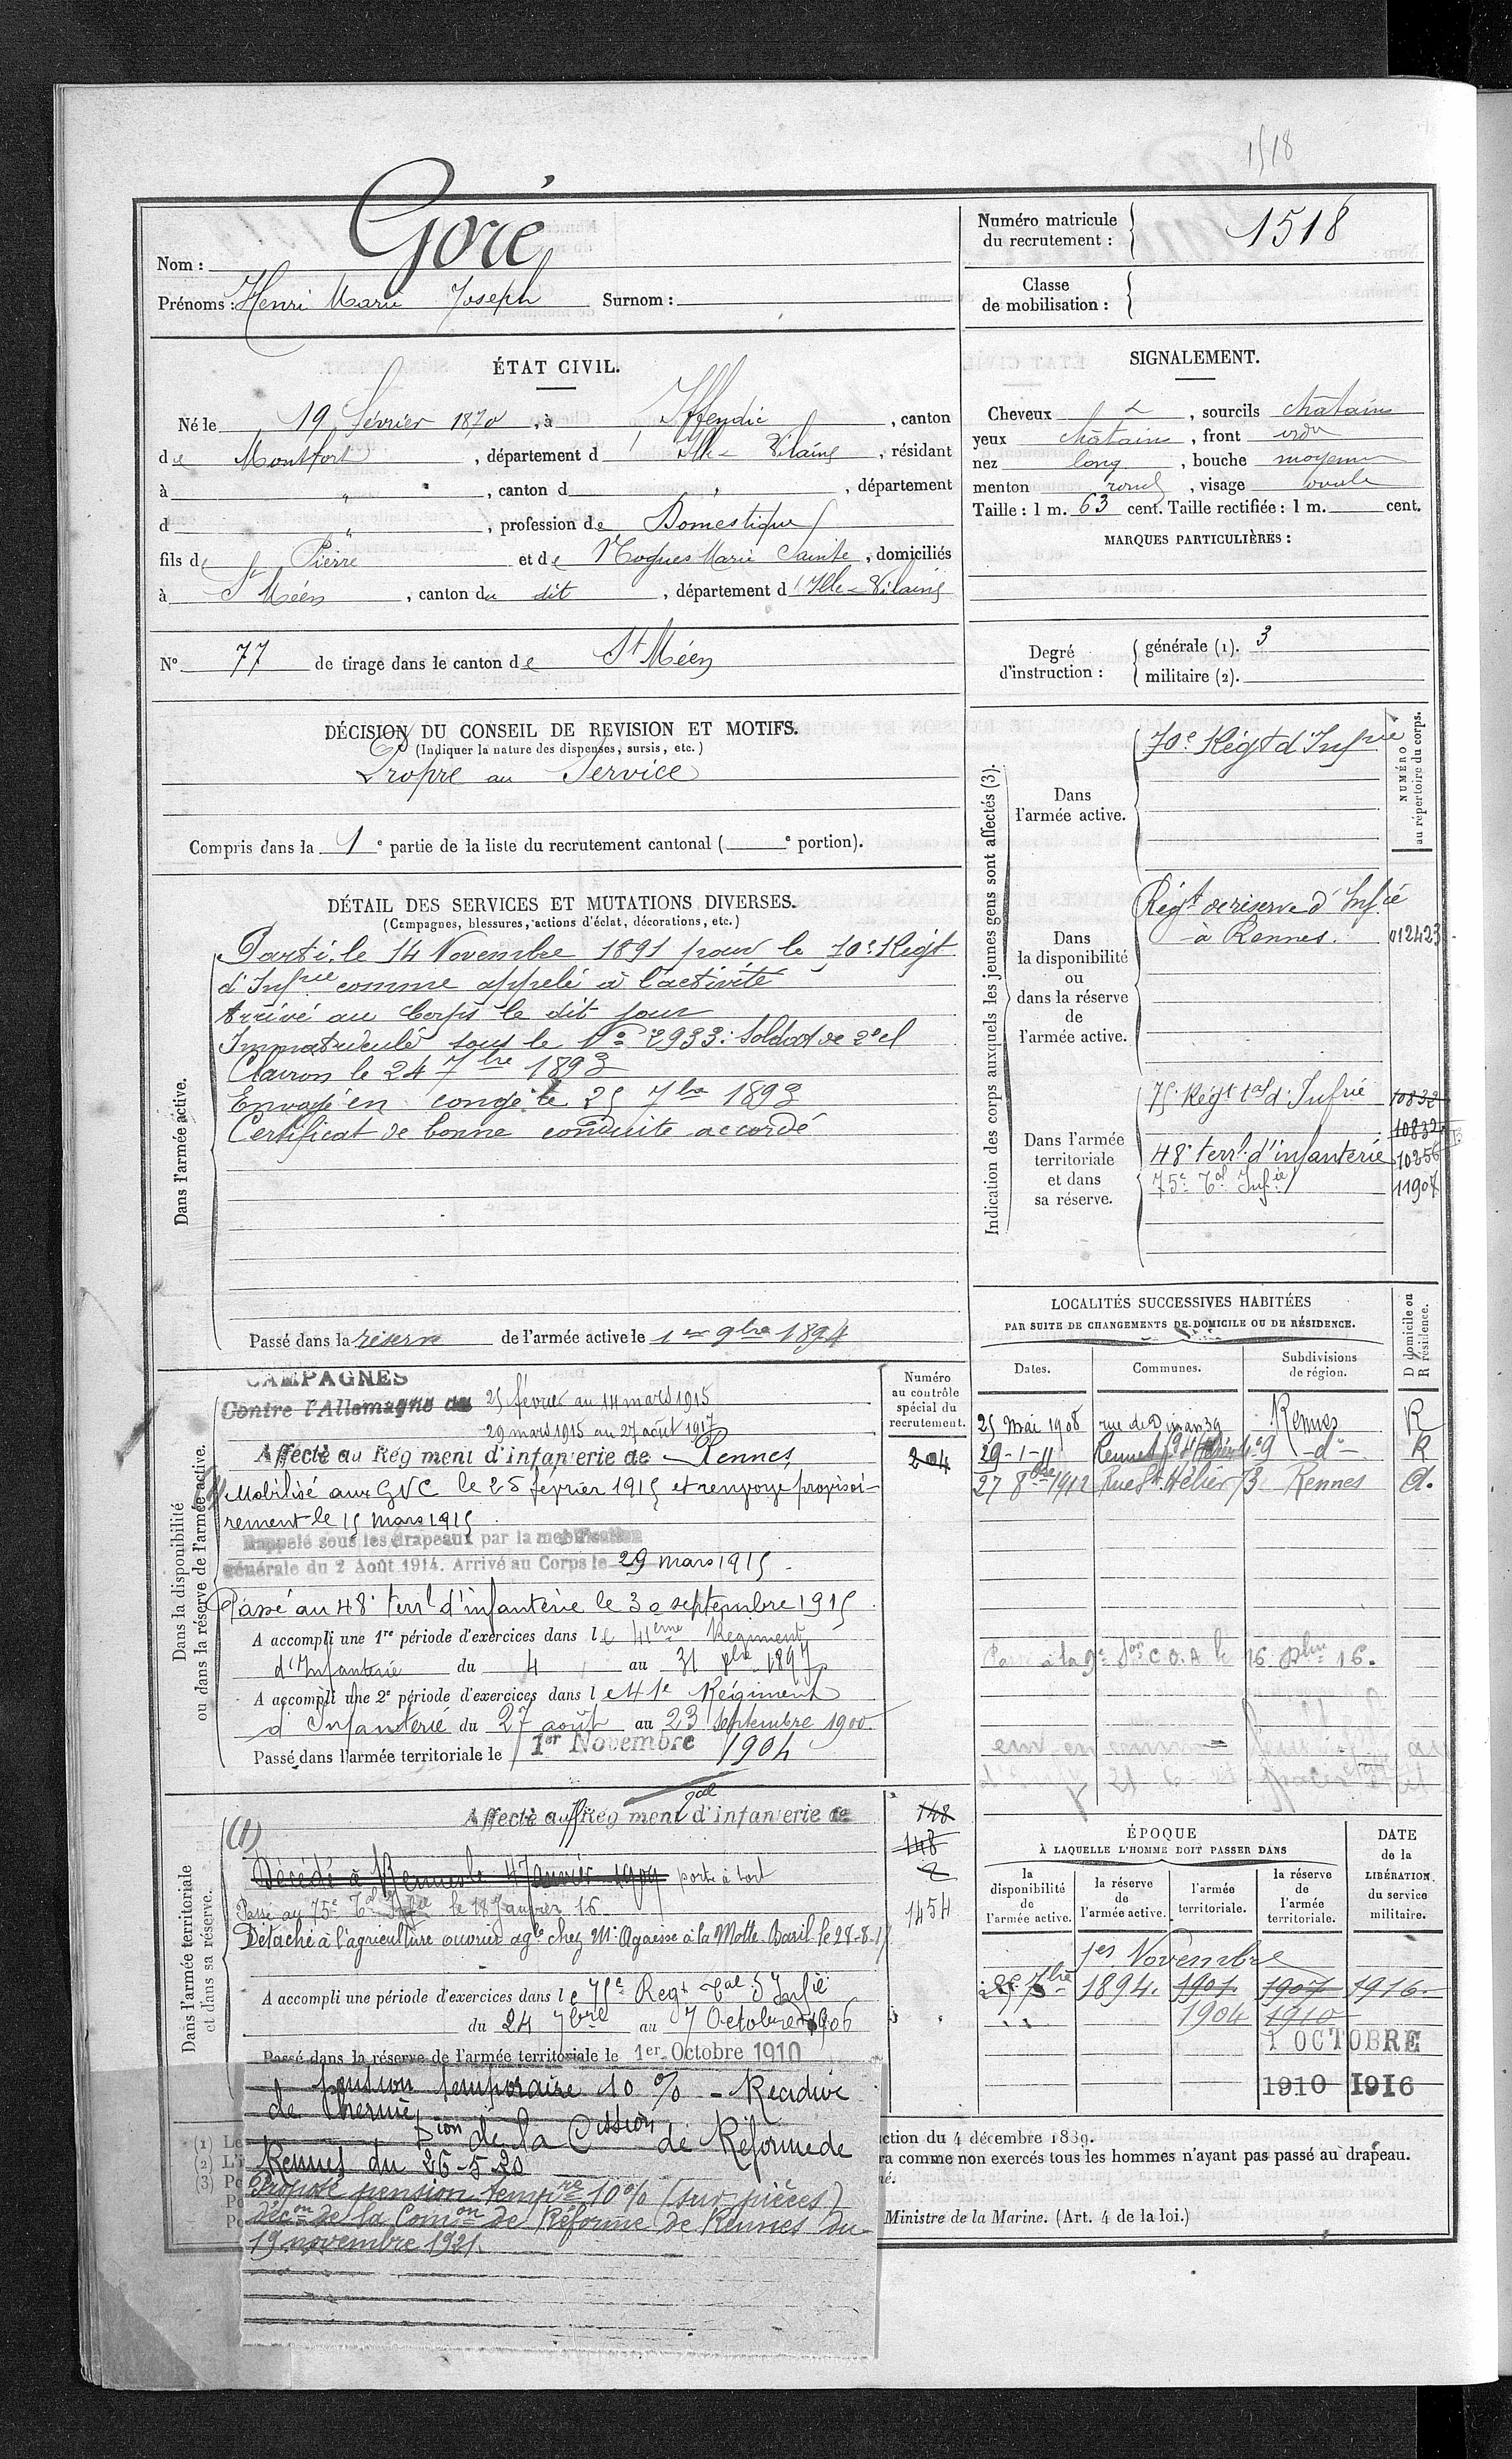 1518
Nom : Goré
Prénoms : Henri Marie Joseph Surnom :
Numéro matricule du recrutement : 1518
Classe de mobilisation :
ÉTAT CIVIL.
Né le 19 Février 1870, à Iffendic, canton
de Montfort, département d'Ille-Vilaine, résidant
à " , canton d " , département
d " , profession de Domestique
fils de Pierre et de Nogues Marie Sainte, domiciliés
à St Méen, canton du dit, département d'Ille-Vilaine
N° 77 de tirage dans le canton de St Méen
SIGNALEMENT.
Cheveux , sourcils chatains
yeux châtains, front
nez long, bouche moyenne
menton rond, visage ovale
Taille : 1 m. 63 cent. Taille rectifiée : 1 m. cent.
MARQUES PARTICULIÈRES :
Degré d'instruction : générale (1). 3
militaire (2).
DÉCISION DU CONSEIL DE REVISION ET MOTIFS.
(Indiquer la nature des dispenses, sursis, etc.)
Propre au Service
Compris dans la 1e partie de la liste du recrutement cantonal ( e portion).
DÉTAIL DES SERVICES ET MUTATIONS DIVERSES.
(Campagnes, blessures, actions d'éclat, décorations, etc.)
Dans l'armée active.
Parti le 14 Novembre 1891 pour le 70e Régt
d'Infrie comme appelé à l'activité
Arrivé au Corps le dit jour
Immatriculé sous le No 2933. Soldat de 2e cl
Clairon le 24 7bre 1893
Envoyé en congé le 25 7bre 1893
Certificat de bonne conduite accordé
Passé dans la réserve de l'armée active le 1er 9bre 1894
Indication des corps auxquels les jeunes gens sont affectés (3).
NUMÉRO au répertoire du corps.
Dans l'armée active.
70e Régt d'Infrie
Dans la disponibilité ou dans la réserve de l'armée active.
Régt de réserve d'Infie
à Rennes. 012423
Dans l'armée territoriale et dans sa réserve.
75e Régt tal d'Infrie 10832
10832
48e terrl d'infanterie 10256
75e Tal Infie 11907
LOCALITÉS SUCCESSIVES HABITÉES
PAR SUITE DE CHANGEMENTS DE DOMICILE OU DE RÉSIDENCE.
Dates. Communes. Subdivisions de région. D domicile ou R résidence.
25 Mai 1908 rue de Dinan 39 Rennes R
29-1-11 Rennes 9 -do- R
27 8bre 1912 Rue St Hélier 73 Rennes D.
Passé à la 9e Son C.O.A le 16 16.
Dans la disponibilité ou dans la réserve de l'armée active.
Numéro au contrôle spécial du recrutement.
204
CAMPAGNES
Contre l'Allemagne du 25 février au 14 mars 1915
29 mars 1915 au 27 août 1917
Affecté au Régiment d'infanterie de Rennes
Mobilisé aux GVC le 25 février 1915 et renvoyé provisoi-
rement le 15 mars 1915
Rappelé sous les drapeaux par la mobilisation
générale du 2 Août 1914. Arrivé au Corps le 29 mars 1915
Passé au 48e terrl d'infanterie le 30 septembre 1915
A accompli une 1re période d'exercices dans le 41eme Régiment
d'Infanterie du 4 au 31 1897
A accompli une 2e période d'exercices dans le 41e Régiment
d'Infanterie du 27 août au 23 Septembre 1900
Passé dans l'armée territoriale le 1er Novembre 1904
Dans l'armée territoriale et dans sa réserve.
(1)
Affecté au Régiment tal d'infanterie de
148
148
2
1454
Décédé à Rennes le 4 Janvier 1909 porté à tort
Passé au 75e Tal Infie le 18 Janvier 16
Détaché à l'agriculture ouvrier agle chez Mr Agaesse à la Motte Baril le 28-8-17
A accompli une période d'exercices dans le 75e Regt Tal d'Infie
du 24 7bre au 7 Octobre 1906
Passé dans la réserve de l'armée territoriale le 1er Octobre 1910
de pension temporaire 10 % - Recidive
de hernie
Don de la Cission de Réforme de
Rennes du 26-5-20
Proposé pension tempre 10% (sur pièces)
décon de la Comon de Réforme de Rennes du
19 novembre 1921.
ÉPOQUE À LAQUELLE L'HOMME DOIT PASSER DANS
DATE de la LIBÉRATION du service militaire.
la disponibilité de l'armée active. la réserve de l'armée active. l'armée territoriale. la réserve de l'armée territoriale.
1er Novembre
25 7bre 1894. 1901 1907 1916
1904 1910
1 OCTOBRE
1910 1916
(1) Le
(2) L'i
(3) Po
ction du 4 décembre 1889.
ra comme non exercés tous les hommes n'ayant pas passé au drapeau.
né.
Ministre de la Marine. (Art. 4 de la loi.)